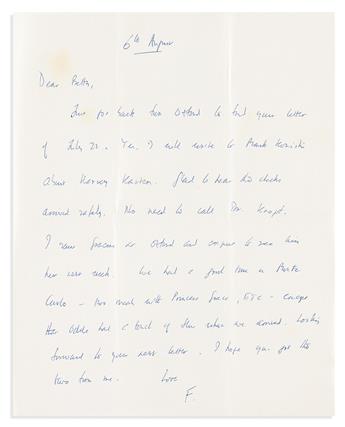 6th August
Dear Betty,
Just got back from Oxford to find your letter
of July 22. Yes, I will write to Frank
about Harvey. Glad to hear the clocks
arrived safely. No need to call Dr. Knopf.
I saw at Oxford and to see him
here next week. We had a good time in Monte
Carlo - two meals with Princess Grace, etc - except
that Odile had a touch of flu when we arrived. Looking
forward to your next letter. I hope you got the
two from me. Love
F.